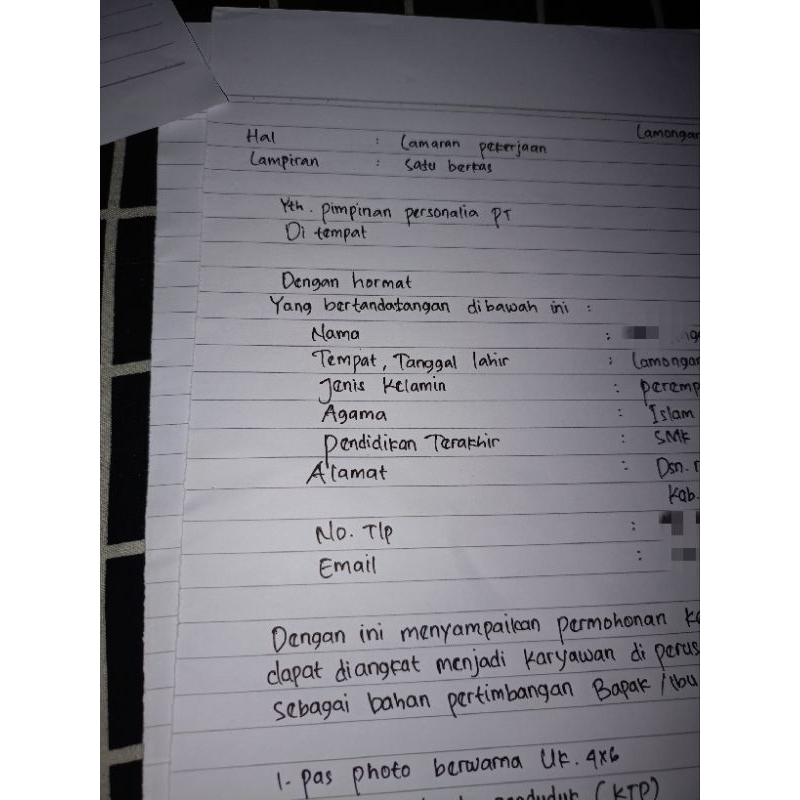 Lamongan
Hal : Lamaran pekerjaan
Lampiran : Satu berkas
Yth. pimpinan personalia PT
Di tempat
Dengan hormat
Yang bertandatangan dibawah ini :
Nama :
Tempat, Tanggal lahir : Lamongan
Jenis Kelamin : peremp
Agama : Islam
pendidikan Terakhir : SMK
Alamat : Dsn.
Kab.
No. Tlp :
Email :
Dengan ini menyampaikan permohonan
dapat diangkat menjadi karyawan di perus
Sebagai bahan pertimbangan Bapak / Ibu
1. pas photo berwarna Uk. 4x6
(KTP)